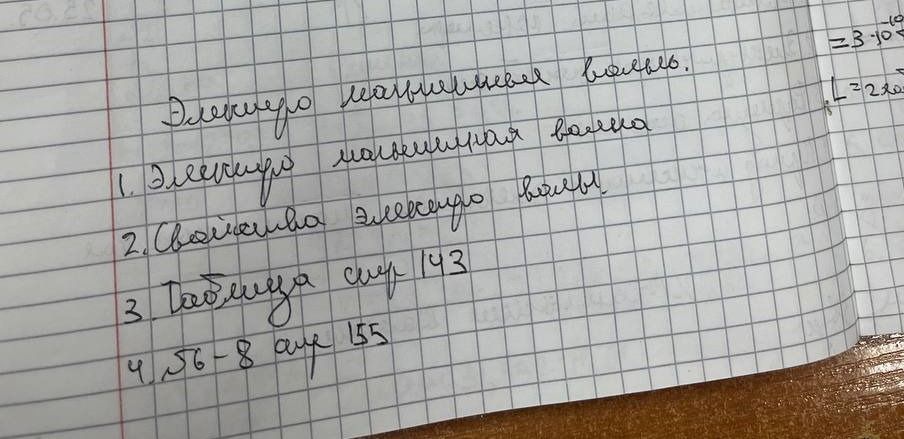 Электро магнитныя волнь.
1. Электро магнитная волна
2. Свойства электро волы.
3. Таблица стр 143
4. §6-8 стр 155
=3·10⁻¹⁰
L=2